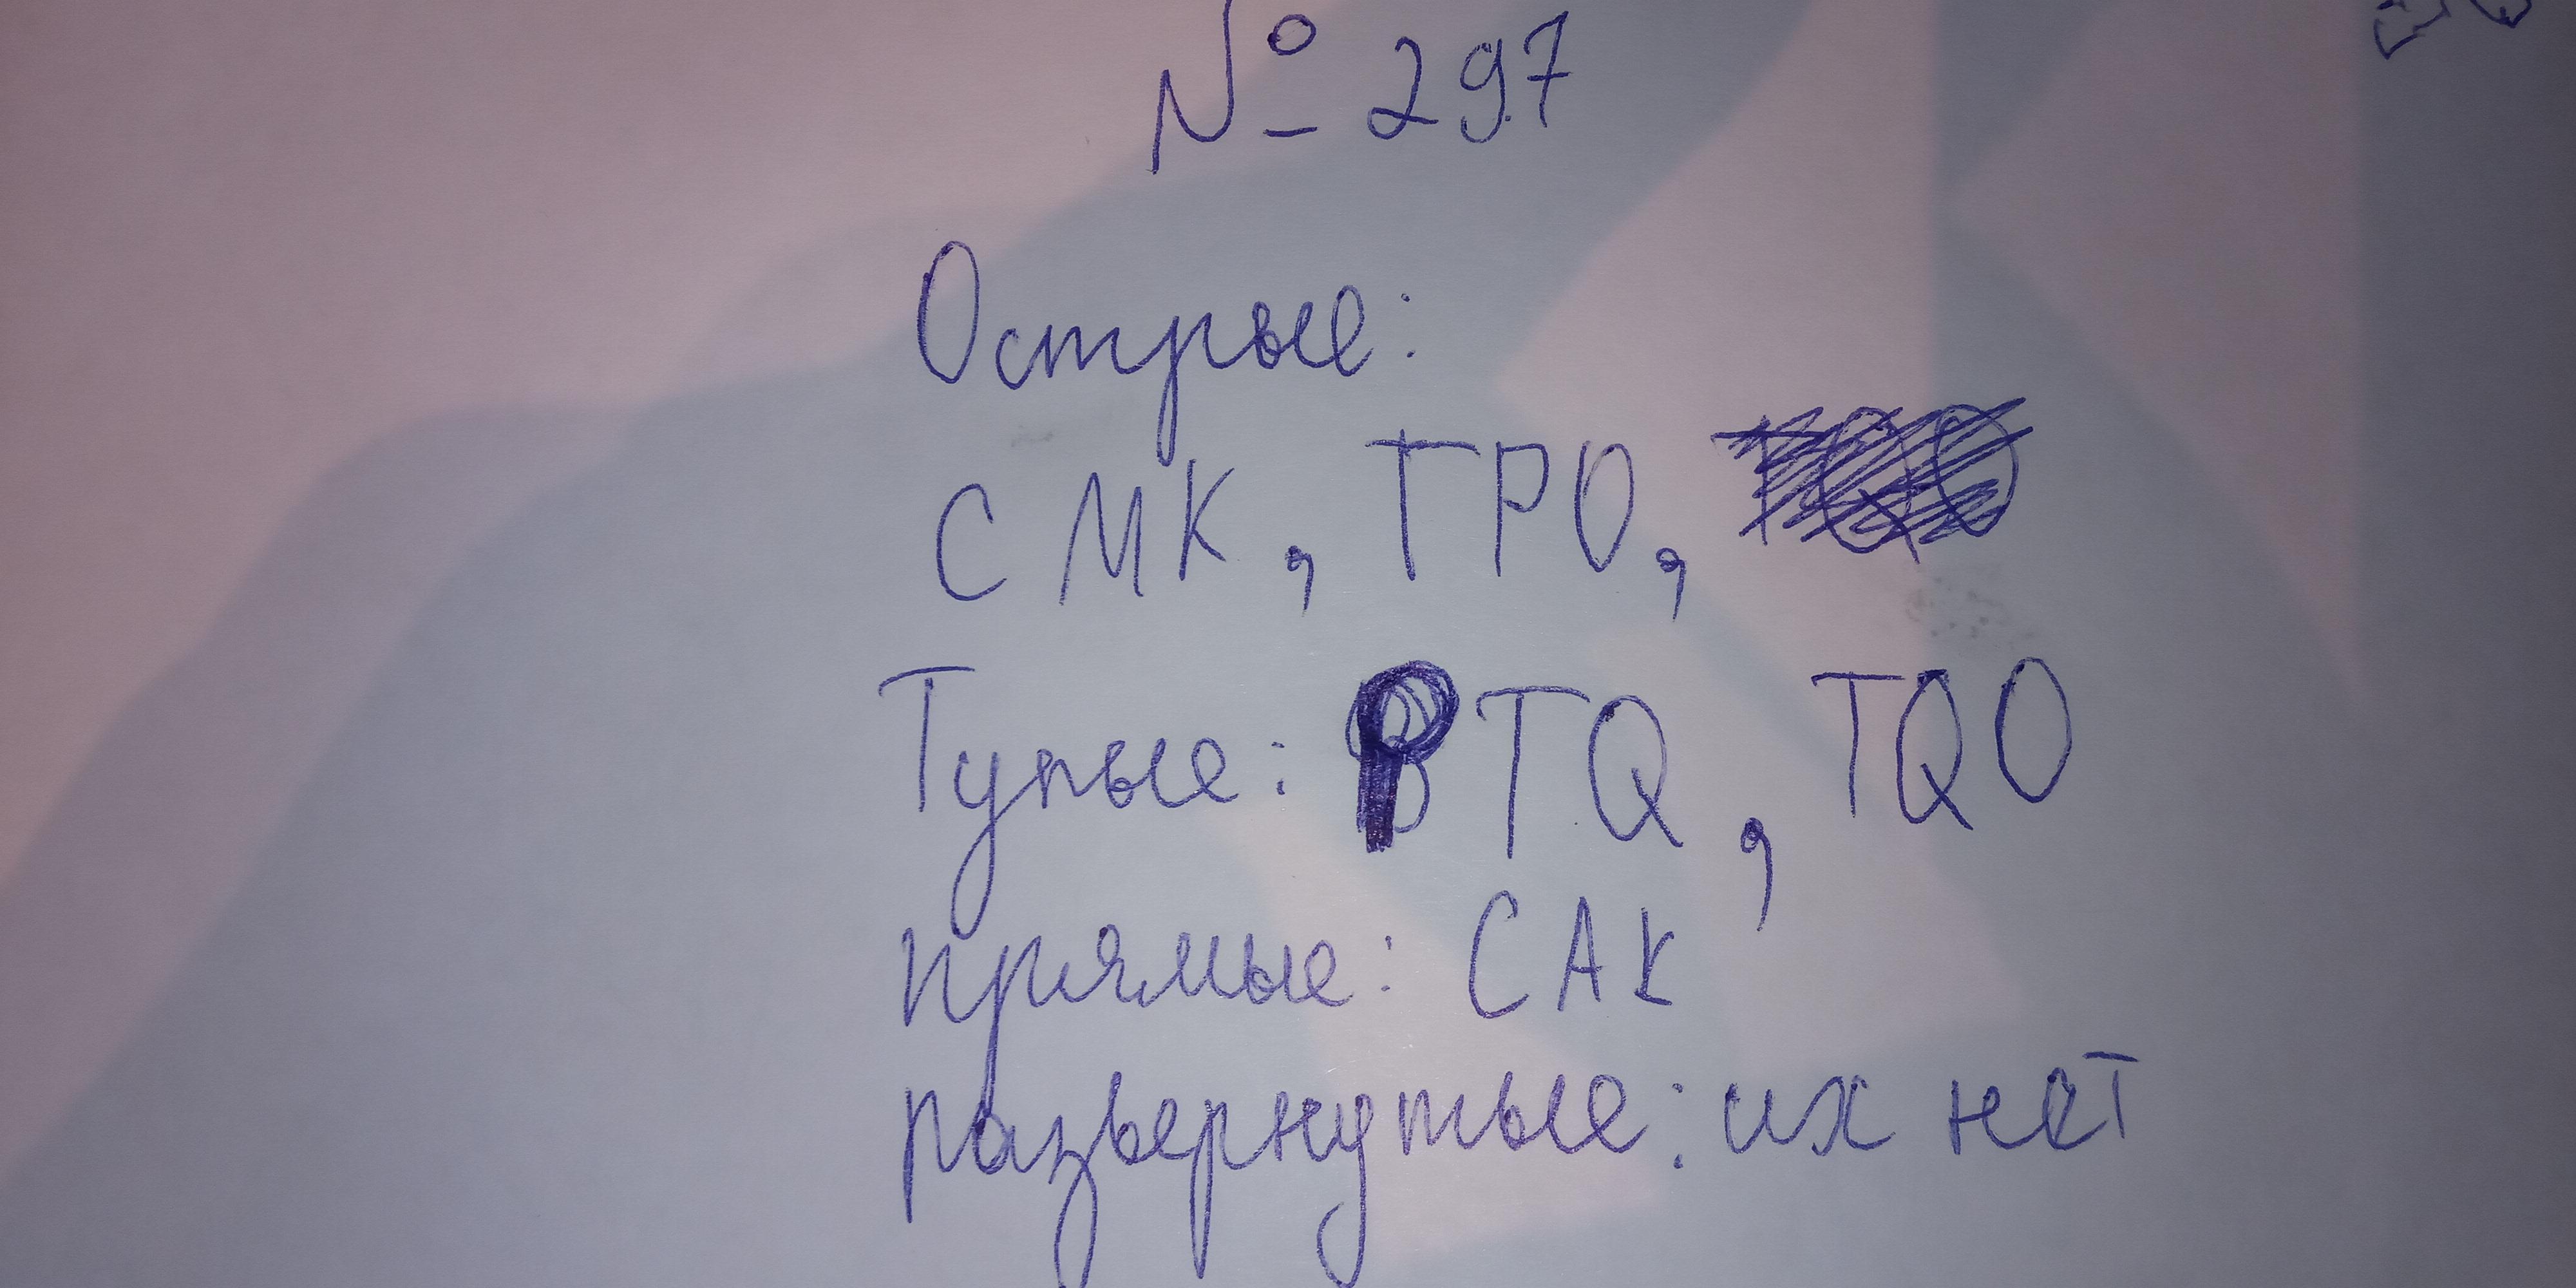 № 297
Острые:
СМК, ТРО,
Тупые: РТQ, TQO
прямые: САК
развернутые: их нет